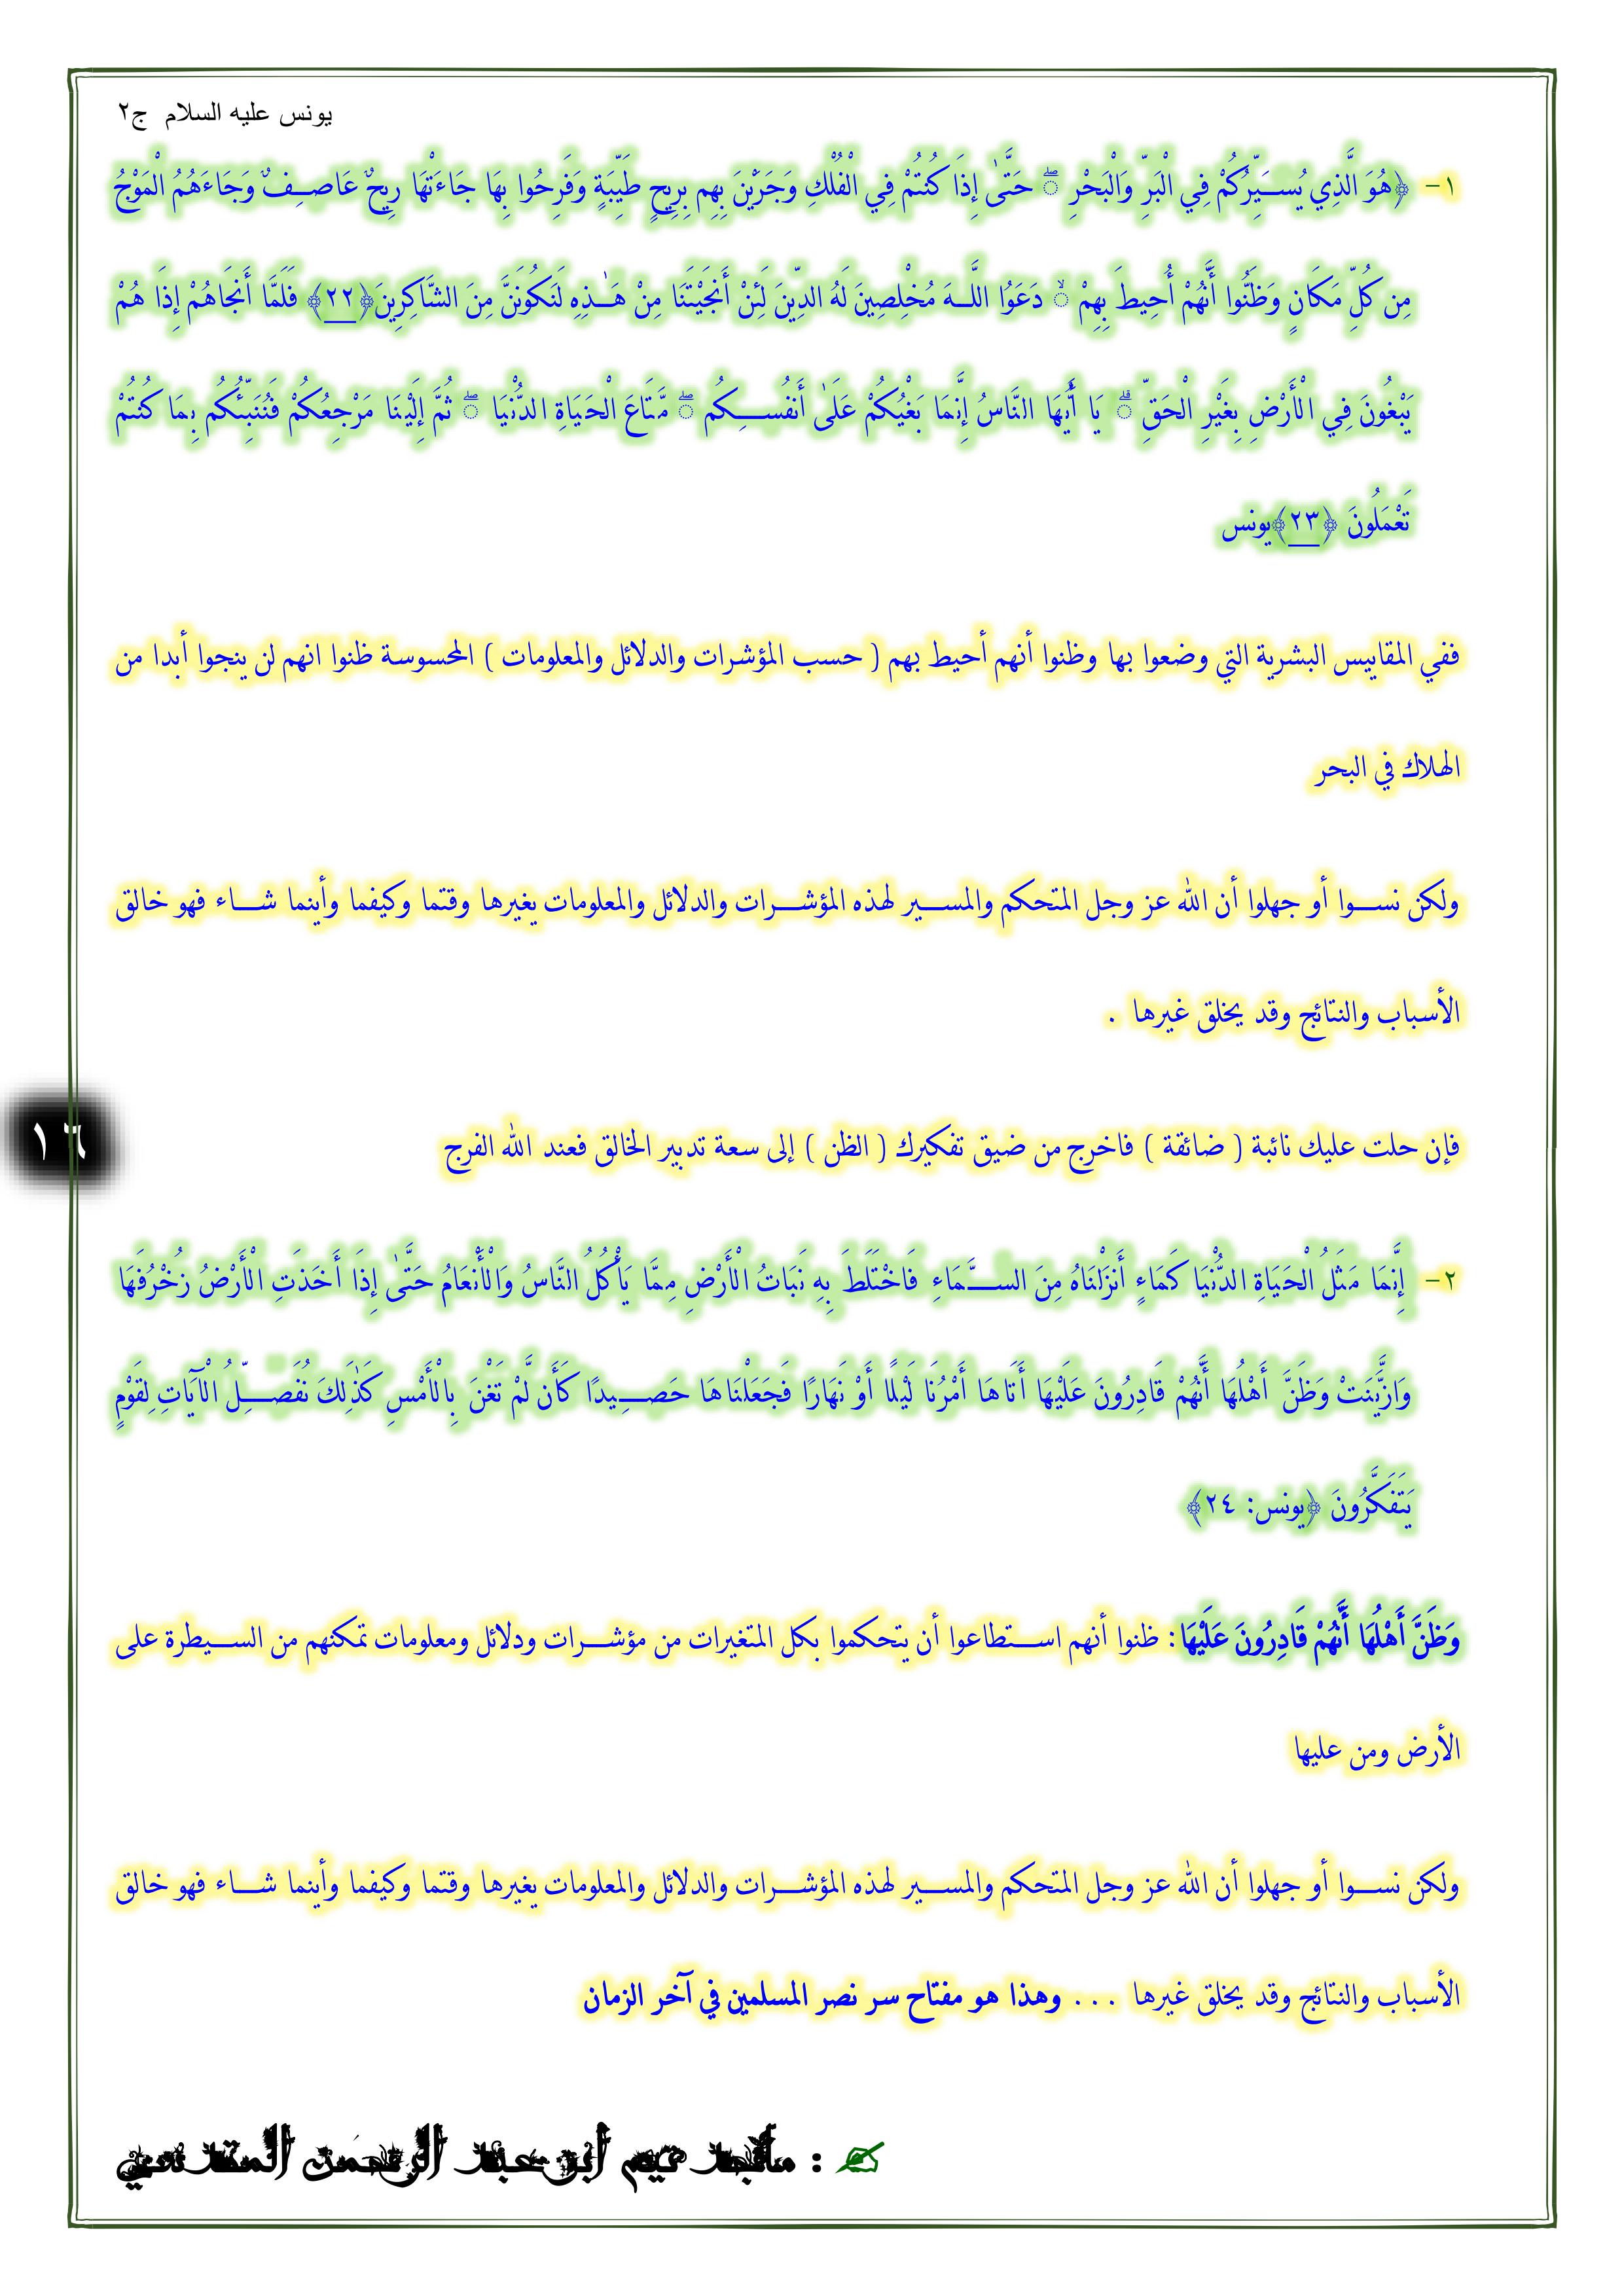 يونس عليه السلام ج٢
١- ﴿هُوَ الَّذِي يُسَيِّرُكُمْ فِي الْبَرِّ وَالْبَحْرِ ۖ حَتَّىٰ إِذَا كُنتُمْ فِي الْفُلْكِ وَجَرَيْنَ بِهِم بِرِيحٍ طَيِّبَةٍ وَفَرِحُوا بِهَا جَاءَتْهَا رِيحٌ عَاصِفٌ وَجَاءَهُمُ الْمَوْجُ
مِن كُلِّ مَكَانٍ وَظَنُّوا أَنَّهُمْ أُحِيطَ بِهِمْ ۙ دَعَوُا اللَّـهَ مُخْلِصِينَ لَهُ الدِّينَ لَئِنْ أَنجَيْتَنَا مِنْ هَـٰذِهِ لَنَكُونَنَّ مِنَ الشَّاكِرِينَ﴿٢٢﴾ فَلَمَّا أَنجَاهُمْ إِذَا هُمْ
يَبْغُونَ فِي الْأَرْضِ بِغَيْرِ الْحَقِّ ۗ يَا أَيُّهَا النَّاسُ إِنَّمَا بَغْيُكُمْ عَلَىٰ أَنفُسِكُم ۖ مَّتَاعَ الْحَيَاةِ الدُّنْيَا ۖ ثُمَّ إِلَيْنَا مَرْجِعُكُمْ فَنُنَبِّئُكُم بِمَا كُنتُمْ
تَعْمَلُونَ ﴿٢٣﴾يونس
ففي المقاييس البشرية التي وضعوا بها وظنوا أنهم أحيط بهم ( حسب المؤشرات والدلائل والمعلومات ) المحسوسة ظنوا انهم لن ينجوا أبدا من
الهلاك في البحر
ولكن نسوا أو جهلوا أن الله عز وجل المتحكم والمسير لهذه المؤشرات والدلائل والمعلومات يغيرها وقتما وكيفما وأينما شاء فهو خالق
الأسباب والنتائج وقد يخلق غيرها .
فإن حلت عليك نائبة ( ضائقة ) فاخرج من ضيق تفكيرك ( الظن ) إلى سعة تدبير الخالق فعند الله الفرج
١٦
٢- إِنَّمَا مَثَلُ الْحَيَاةِ الدُّنْيَا كَمَاءٍ أَنزَلْنَاهُ مِنَ السَّمَاءِ فَاخْتَلَطَ بِهِ نَبَاتُ الْأَرْضِ مِمَّا يَأْكُلُ النَّاسُ وَالْأَنْعَامُ حَتَّىٰ إِذَا أَخَذَتِ الْأَرْضُ زُخْرُفَهَا
وَازَّيَّنَتْ وَظَنَّ أَهْلُهَا أَنَّهُمْ قَادِرُونَ عَلَيْهَا أَتَاهَا أَمْرُنَا لَيْلًا أَوْ نَهَارًا فَجَعَلْنَاهَا حَصِيدًا كَأَن لَّمْ تَغْنَ بِالْأَمْسِ كَذَٰلِكَ نُفَصِّلُ الْآيَاتِ لِقَوْمٍ
يَتَفَكَّرُونَ ﴿يونس: ٢٤﴾
وَظَنَّ أَهْلُهَا أَنَّهُمْ قَادِرُونَ عَلَيْهَا: ظنوا أنهم استطاعوا أن يتحكموا بكل المتغيرات من مؤشرات ودلائل ومعلومات تمكنهم من السيطرة على
الأرض ومن عليها
ولكن نسوا أو جهلوا أن الله عز وجل المتحكم والمسير لهذه المؤشرات والدلائل والمعلومات يغيرها وقتما وكيفما وأينما شاء فهو خالق
الأسباب والنتائج وقد يخلق غيرها ... وهذا هو مفتاح سر نصر المسلمين في آخر الزمان
: ماجد تيم أبو عبد الرحمن المقدسي